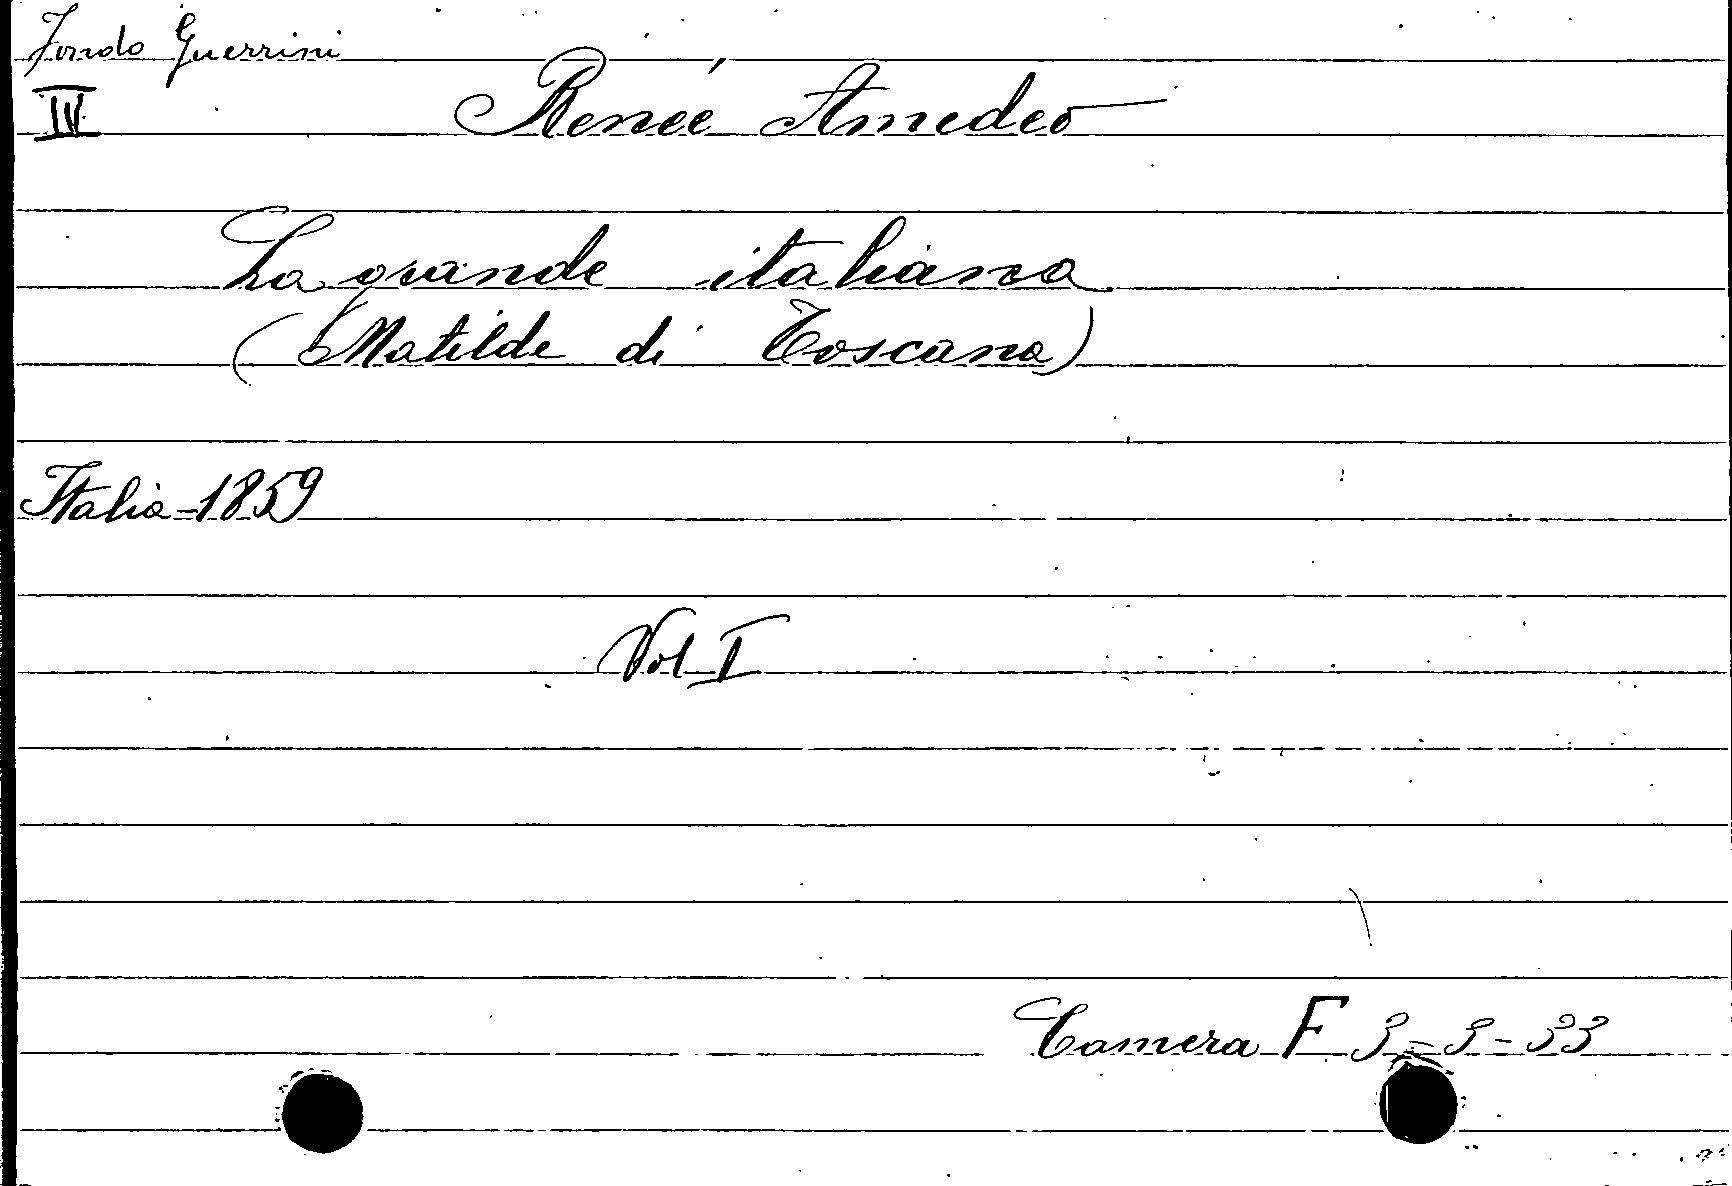 Fondo Guerrini
IV
Reneé Amedeo
La grande italiana
(Matilde di Toscana)
Italia - 1859
Vol I
Camera F 3 = 3 = 33